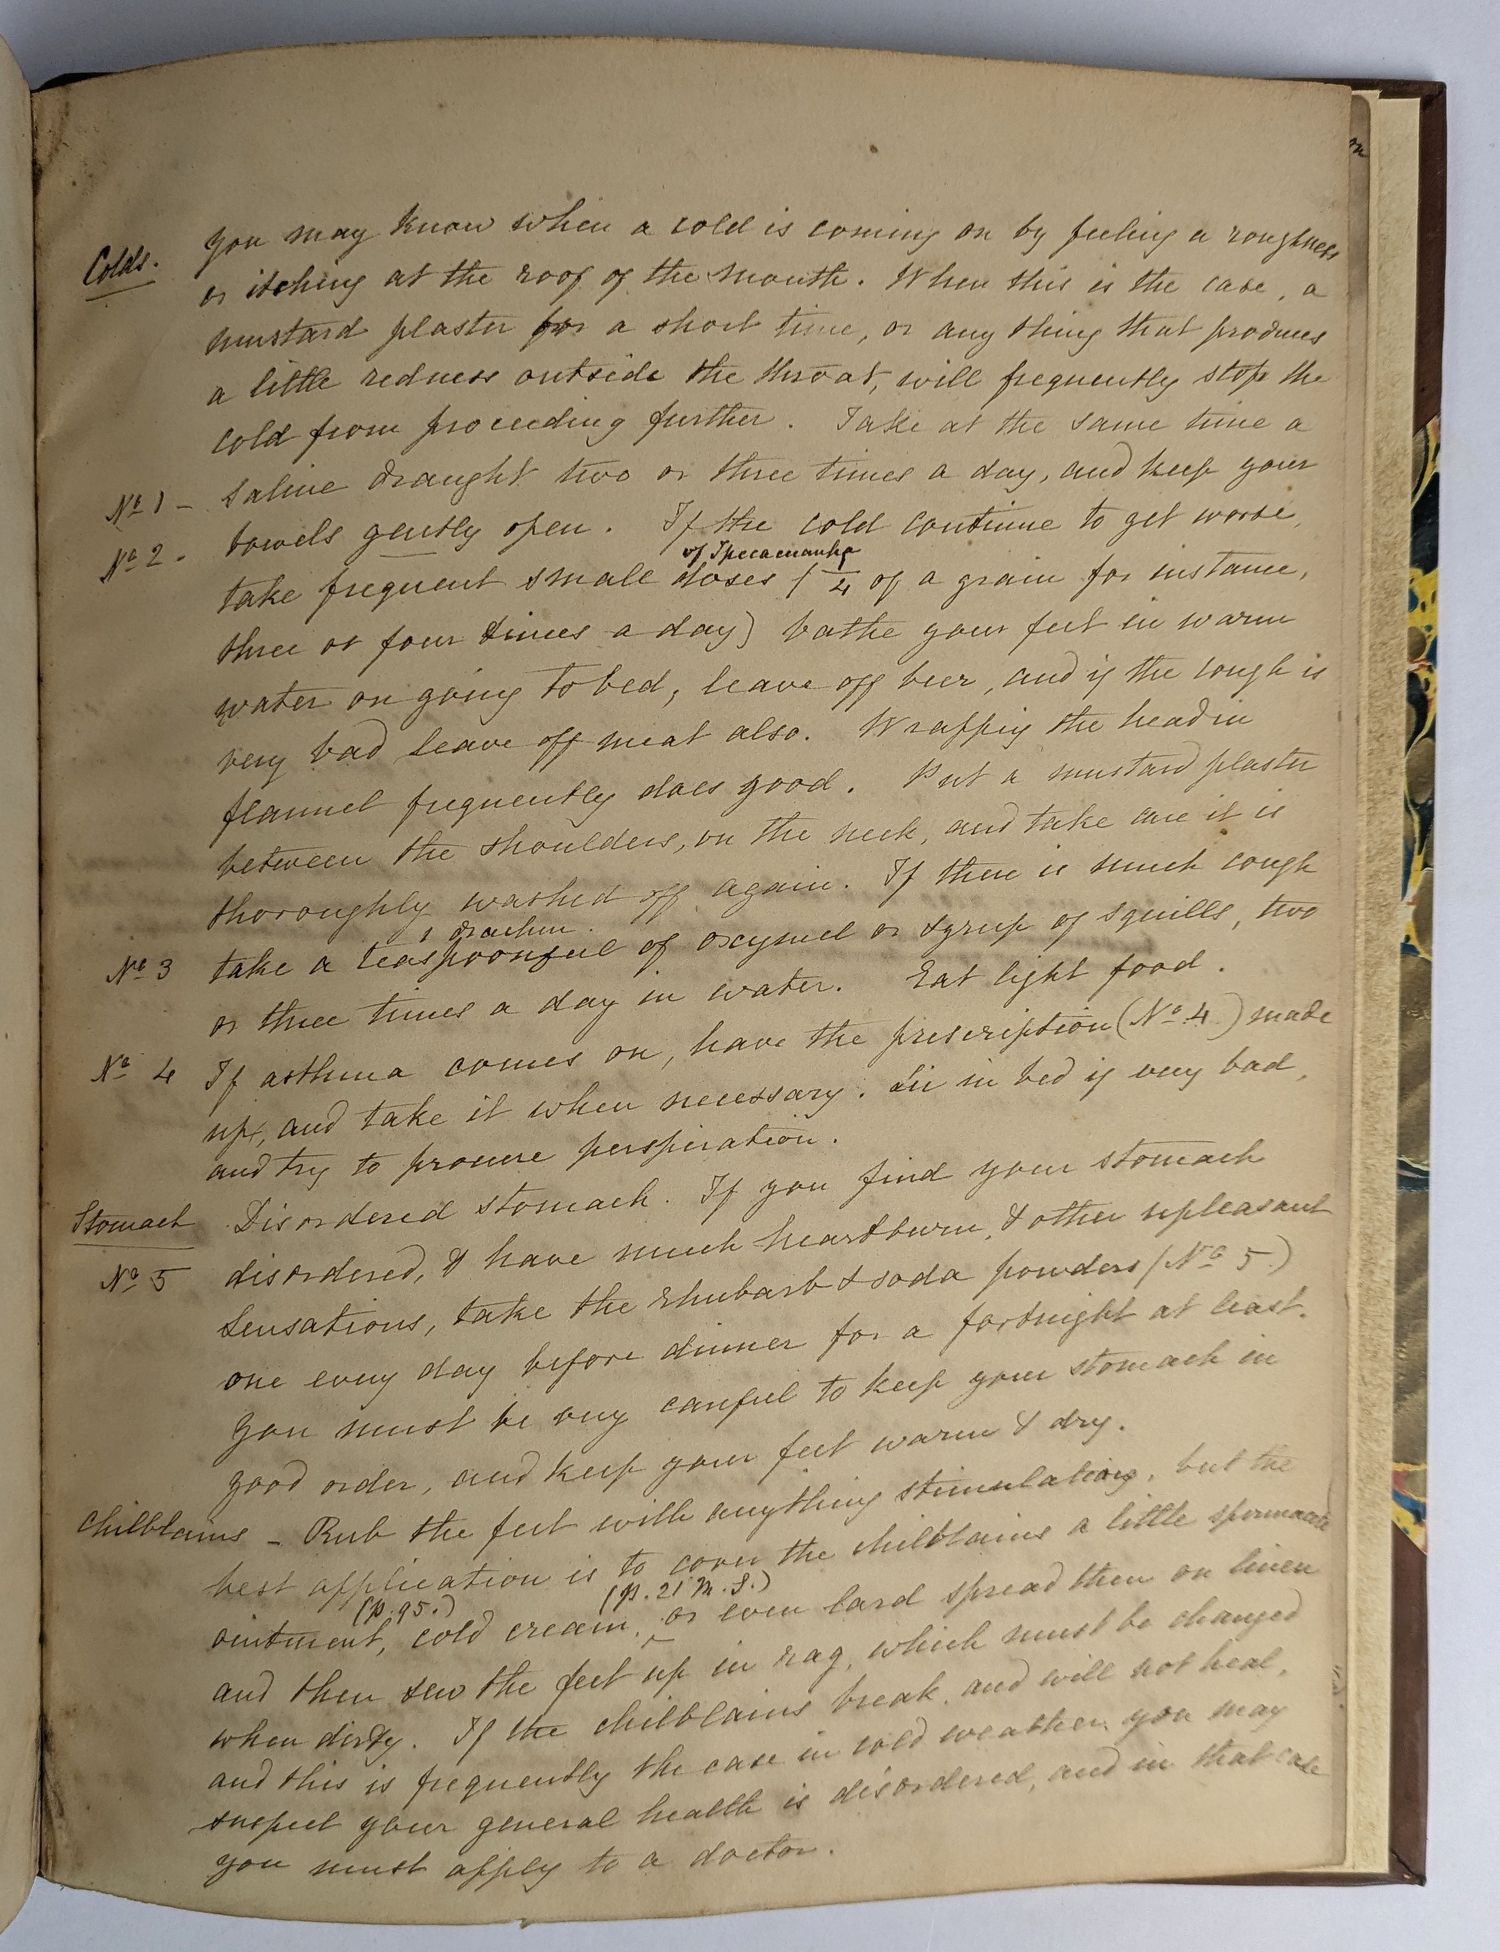 Colds. you may know when a cold is coming on by feeling a roughness
or itching at the roof of the mouth. When this is the case, a
mustard plaster for a short time, or any thing that produces
a little redness outside the throat, will frequently stop the
cold from proceeding further. Take at the same time a
No 1 - saline draught two or three times a day, and keep your
No 2 - bowels gently open. If the cold continue to get worse,
of Ipecacuanha
take frequent small doses (1/4 of a grain for instance,
three or four times a day) bathe your feet in warm
water on going to bed, leave off beer, and if the cough is
very bad leave off meat also. Wrappig the head in
flannel frequently does good. Put a mustard plaster
between the shoulders, on the neck, and take care it is
thoroughly washed off again. If there is much cough
1 drachm.
No 3 take a teaspoonful of oxymel or syrup of squills, two
or three times a day in water. Eat light food.
No 4 If asthma comes on, have the prescription (No 4) made
up, and take it when necessary. Lie in bed if very bad,
and try to procure perspiration.
Stomach Disordered stomach. If you find your stomach
No 5 disordered, & have much heartburn, & other upleasant
sensations, take the rhubarb & soda powders (No 5.)
one every day before dinner for a fortnight at least.
you must be very careful to keep your stomach in
good order, and keep your feet warm & dry.
Chilblains - Rub the feet with anything stimulating, but the
best application is to cover the chilblains a little spermaceti
(p. 95.) (p. 21 M. S.)
ointment, cold cream, or even lard spread then on linen
and then sew the feet up in rag, which must be changed
when dirty. If the chilblains break, and will not heal,
and this is frequently the case in cold weather, you may
suspect your general health is disordered, and in that case
you must apply to a doctor.